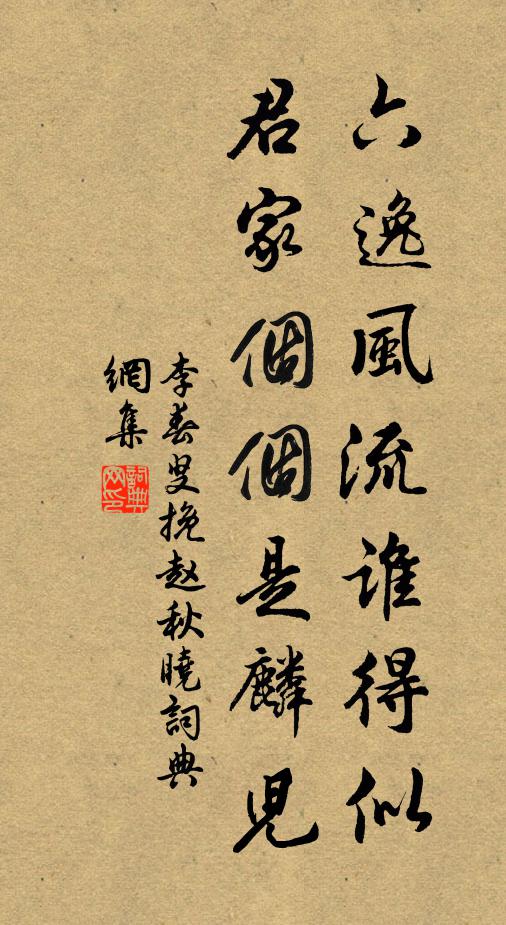 六逸風流誰得似
君家個個是麟兒
李春叟挽赵秋曉詞典
網集
詞典
网印